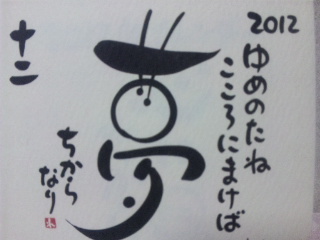 2012
ゆめのたね
こころにまけば
夢
ちから
なり
十二